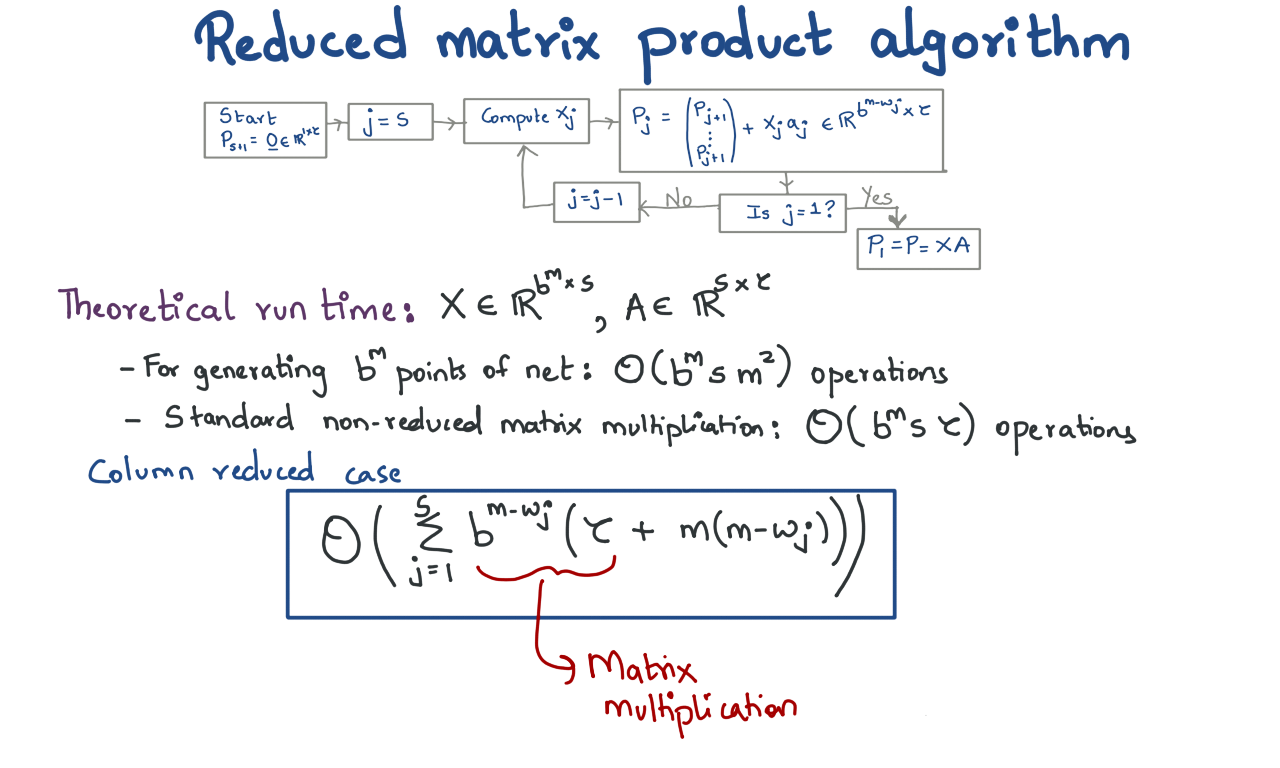 Reduced matrix product algorithm
Start
P_{s+1} = 0 ∈ ℝ^{1×τ}
j = s
Compute X_j
P_j = (P_{j+1} ⋮ P_{j+1}) + X_j a_j ∈ ℝ^{b^{m-w_j} × τ}
j = j-1
No
Is j = 1?
Yes
P_1 = P = XA
Theoretical run time: X ∈ ℝ^{b^m × s}, A ∈ ℝ^{s × τ}
- For generating b^m points of net: O(b^m s m^2) operations
- Standard non-reduced matrix multiplication: O(b^m s τ) operations
Column reduced case
O(∑_{j=1}^{s} b^{m-w_j} (τ + m(m-w_j)))
Matrix
multiplication